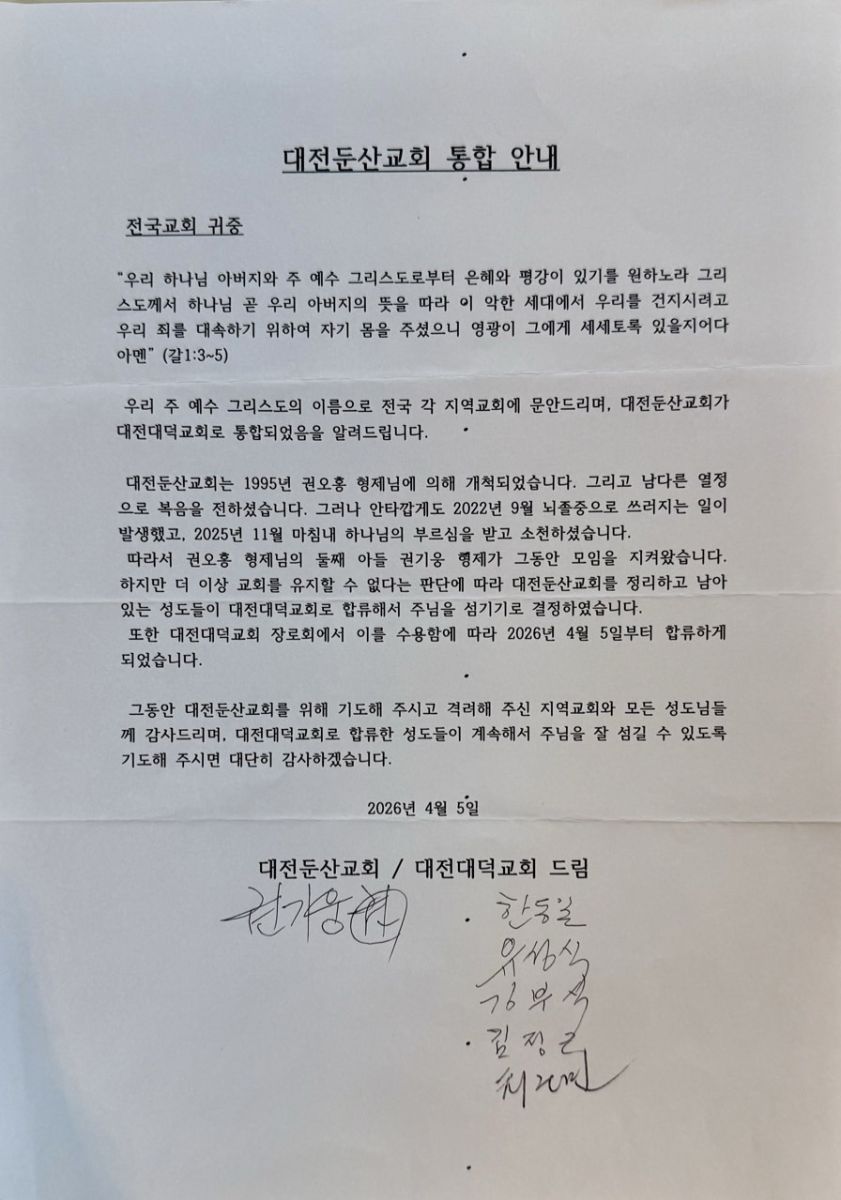 대전둔산교회 통합 안내
전국교회 귀중
"우리 하나님 아버지와 주 예수 그리스도로부터 은혜와 평강이 있기를 원하노라 그리
스도께서 하나님 곧 우리 아버지의 뜻을 따라 이 악한 세대에서 우리를 건지시려고
우리 죄를 대속하기 위하여 자기 몸을 주셨으니 영광이 그에게 세세토록 있을지어다
아멘" (갈1:3~5)
우리 주 예수 그리스도의 이름으로 전국 각 지역교회에 문안드리며, 대전둔산교회가
대전대덕교회로 통합되었음을 알려드립니다.
대전둔산교회는 1995년 권오홍 형제님에 의해 개척되었습니다. 그리고 남다른 열정
으로 복음을 전하셨습니다. 그러나 안타깝게도 2022년 9월 뇌졸중으로 쓰러지는 일이
발생했고, 2025년 11월 마침내 하나님의 부르심을 받고 소천하셨습니다.
따라서 권오홍 형제님의 둘째 아들 권기웅 형제가 그동안 모임을 지켜왔습니다.
하지만 더 이상 교회를 유지할 수 없다는 판단에 따라 대전둔산교회를 정리하고 남아
있는 성도들이 대전대덕교회로 합류해서 주님을 섬기기로 결정하였습니다.
또한 대전대덕교회 장로회에서 이를 수용함에 따라 2026년 4월 5일부터 합류하게
되었습니다.
그동안 대전둔산교회를 위해 기도해 주시고 격려해 주신 지역교회와 모든 성도님들
께 감사드리며, 대전대덕교회로 합류한 성도들이 계속해서 주님을 잘 섬길 수 있도록
기도해 주시면 대단히 감사하겠습니다.
2026년 4월 5일
대전둔산교회 / 대전대덕교회 드림
권기웅
한동일
유성식